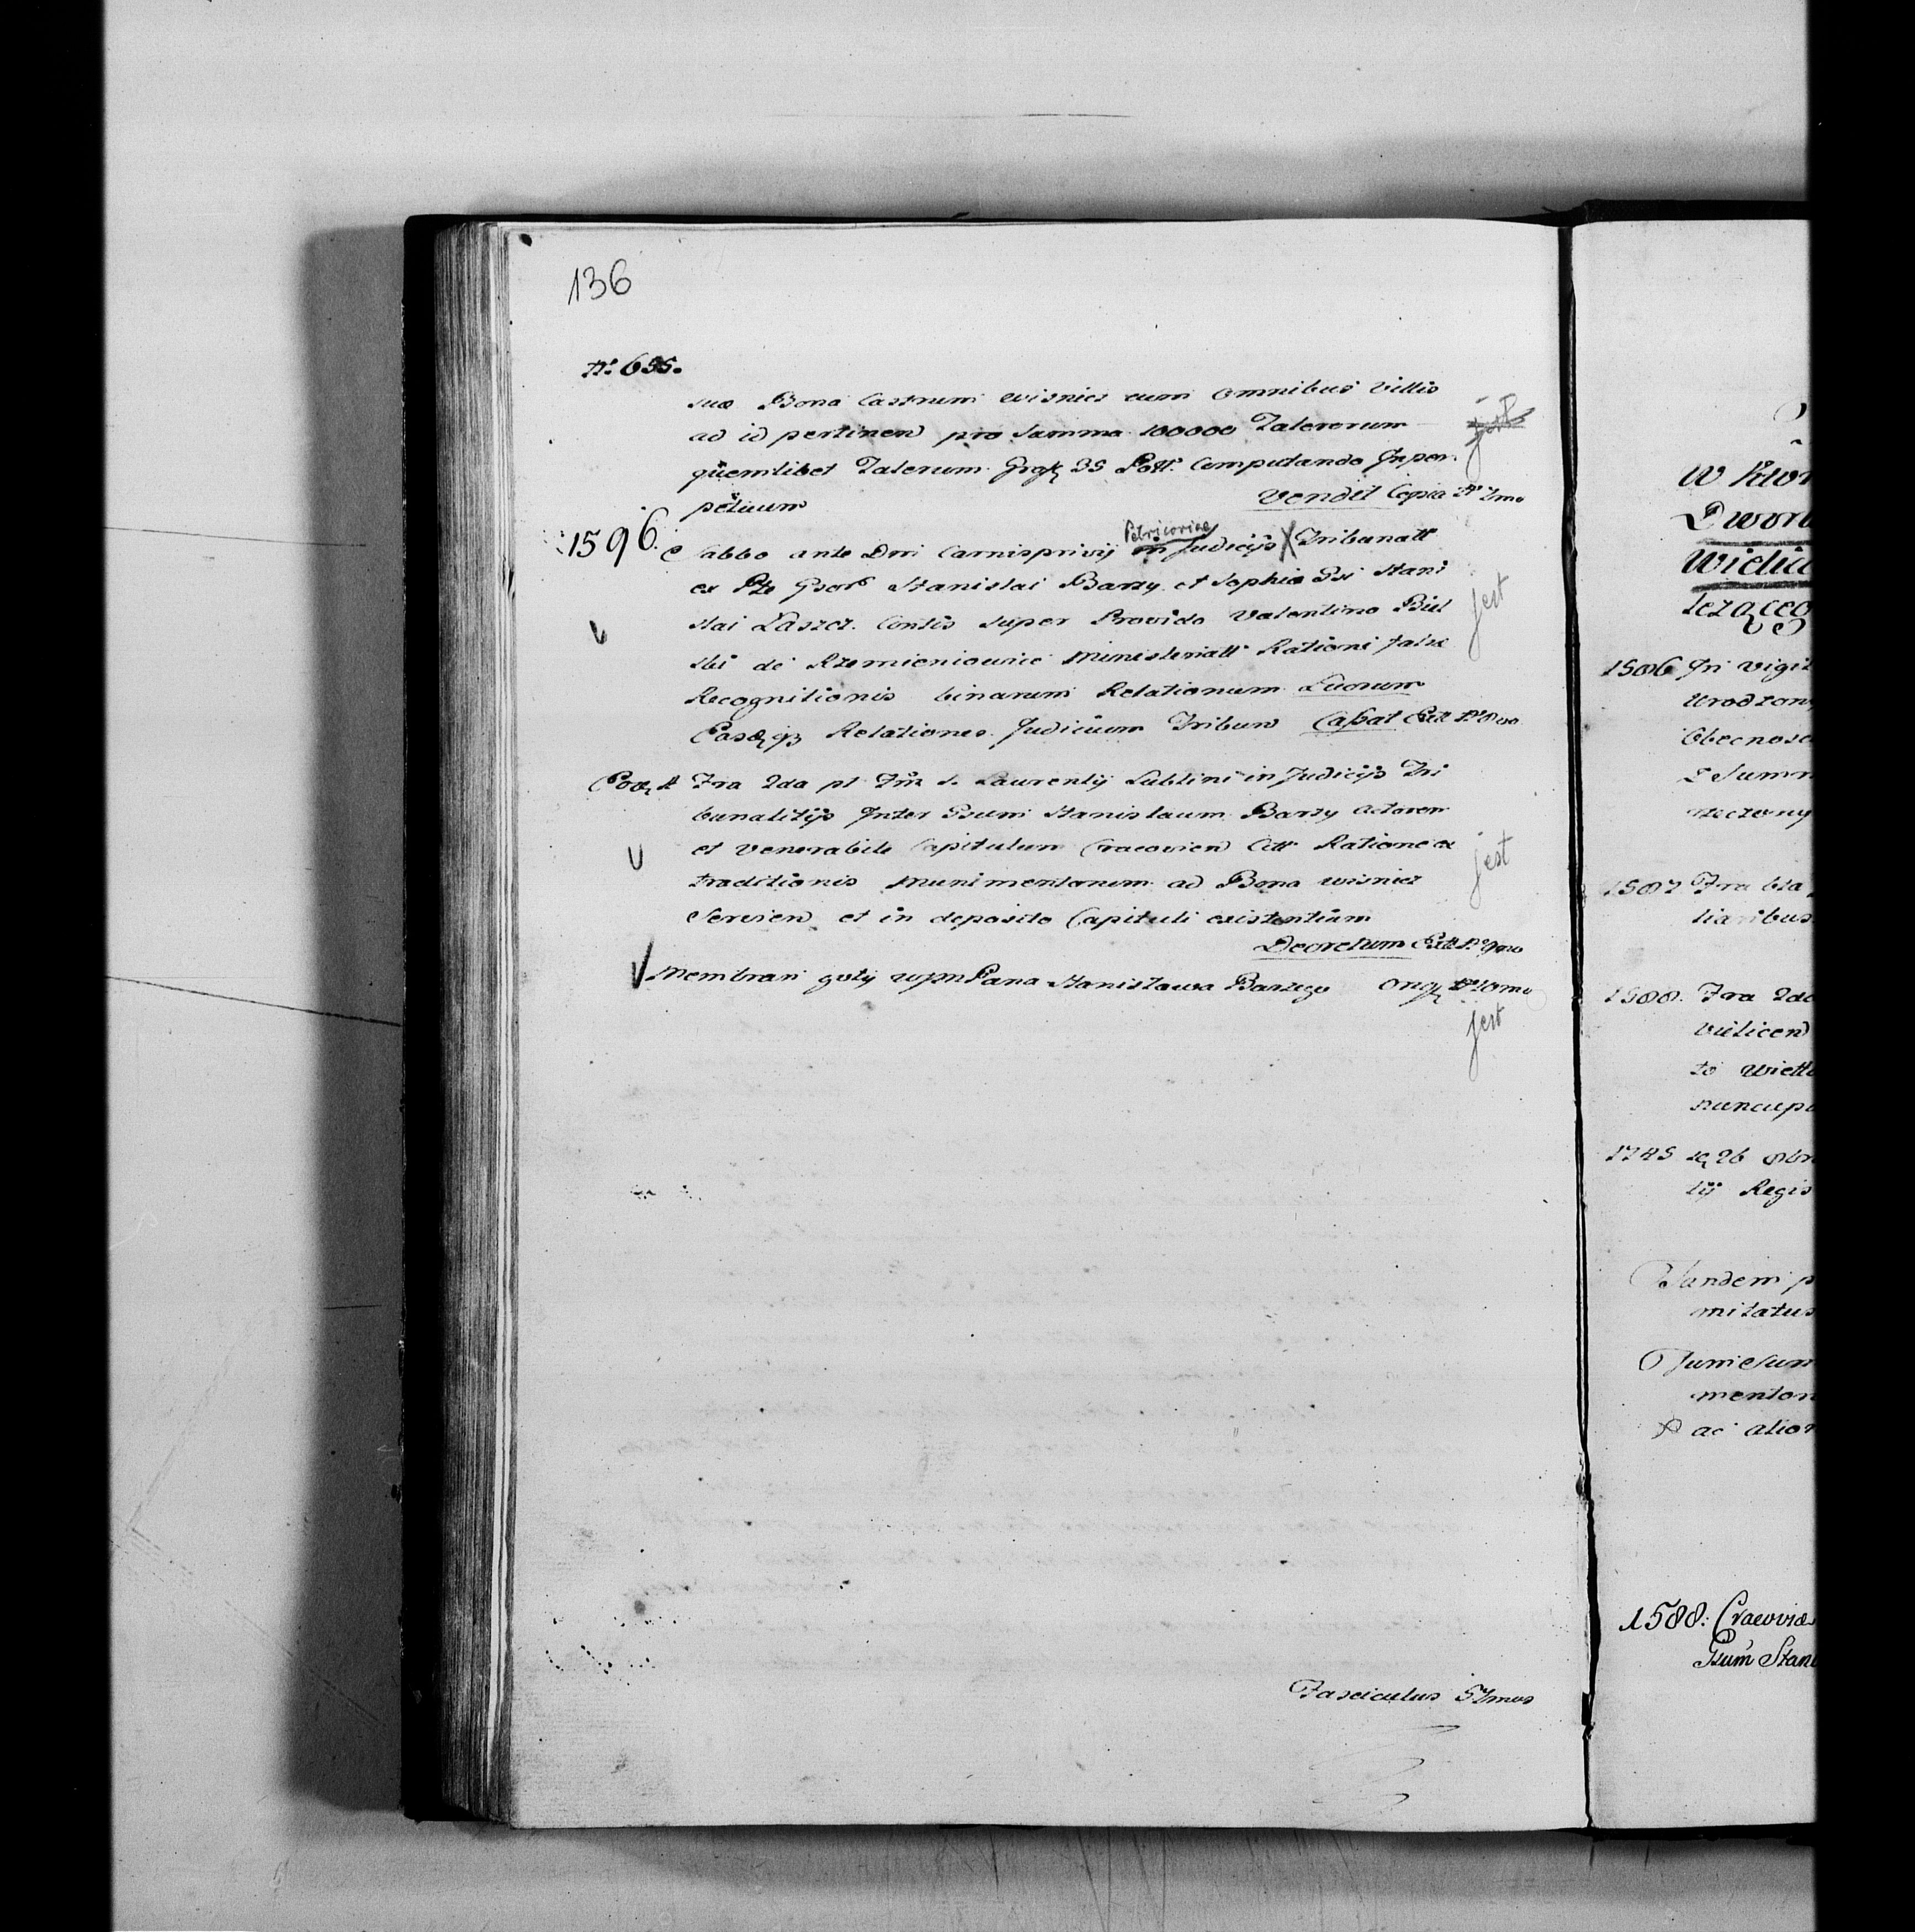 136
Nº 655.
suae Bona Castrum Wisnicz cum omnibus Villis
ad id pertinen pro Summa 100000 Talerorum
quemlibet Talerum 35 Poll. Computando In per
petuum Vendit Copia Nº 7mo
1596. Sabbo ante Dni Carnisprivij in Judicijs Petricoviae X Tribunall
ex Stanislai Barzy et Sophia Gsi Stani
slai Laszcz. Contis super Provido Valentino Biel
ski de Rzemieniowice Ministeriall Rationi falsae
Recognitionis binarum Relationum Quorum
Relationes Judicium Tribun Cassat Nº 8vo
jest
Fra 2da pt S. Laurentij Lublini in Judicijs Tri
bunalitijs Inter Gsum Stanislaum Barzy Actorem
et Venerabile Capitulum Cracovien Citt Ratione ex
traditionis Munimentorum ad Bona Wisnicz
Servien et in deposito Capituli existentium
Decretum Nº 9no
jest
Membran goły WJM Pana Stanisława Barzego Nº 10mo
jest
Fasciculus 57mus
w któr
Dwor
Wielic
1586 In vigil
Urodzon
Obecnosc
1587 Fra 6ta
1588. Fra 2da
vielicen
nuncupa
1745
tij Regis
Tandem p
mitatus
mentor
ac alior
1588. Cracoviae
Gsum Stani